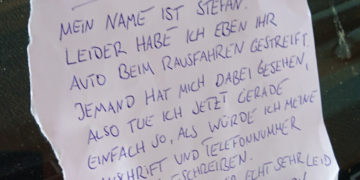 MEIN NAME IST STEFAN.
LEIDER HABE ICH EBEN IHR
AUTO BEIM RAUSFAHREN GESTREIFT.
JEMAND HAT MICH DABEI GESEHEN,
ALSO TUE ICH JETZT GERADE
EINFACH SO, ALS WÜRDE ICH MEINE
UND TELEFONNUMMER
ECHT SEHR LEID